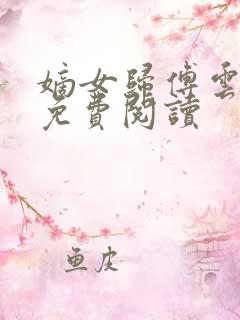 嫡女歸傅雲
免費閱讀
魚皮